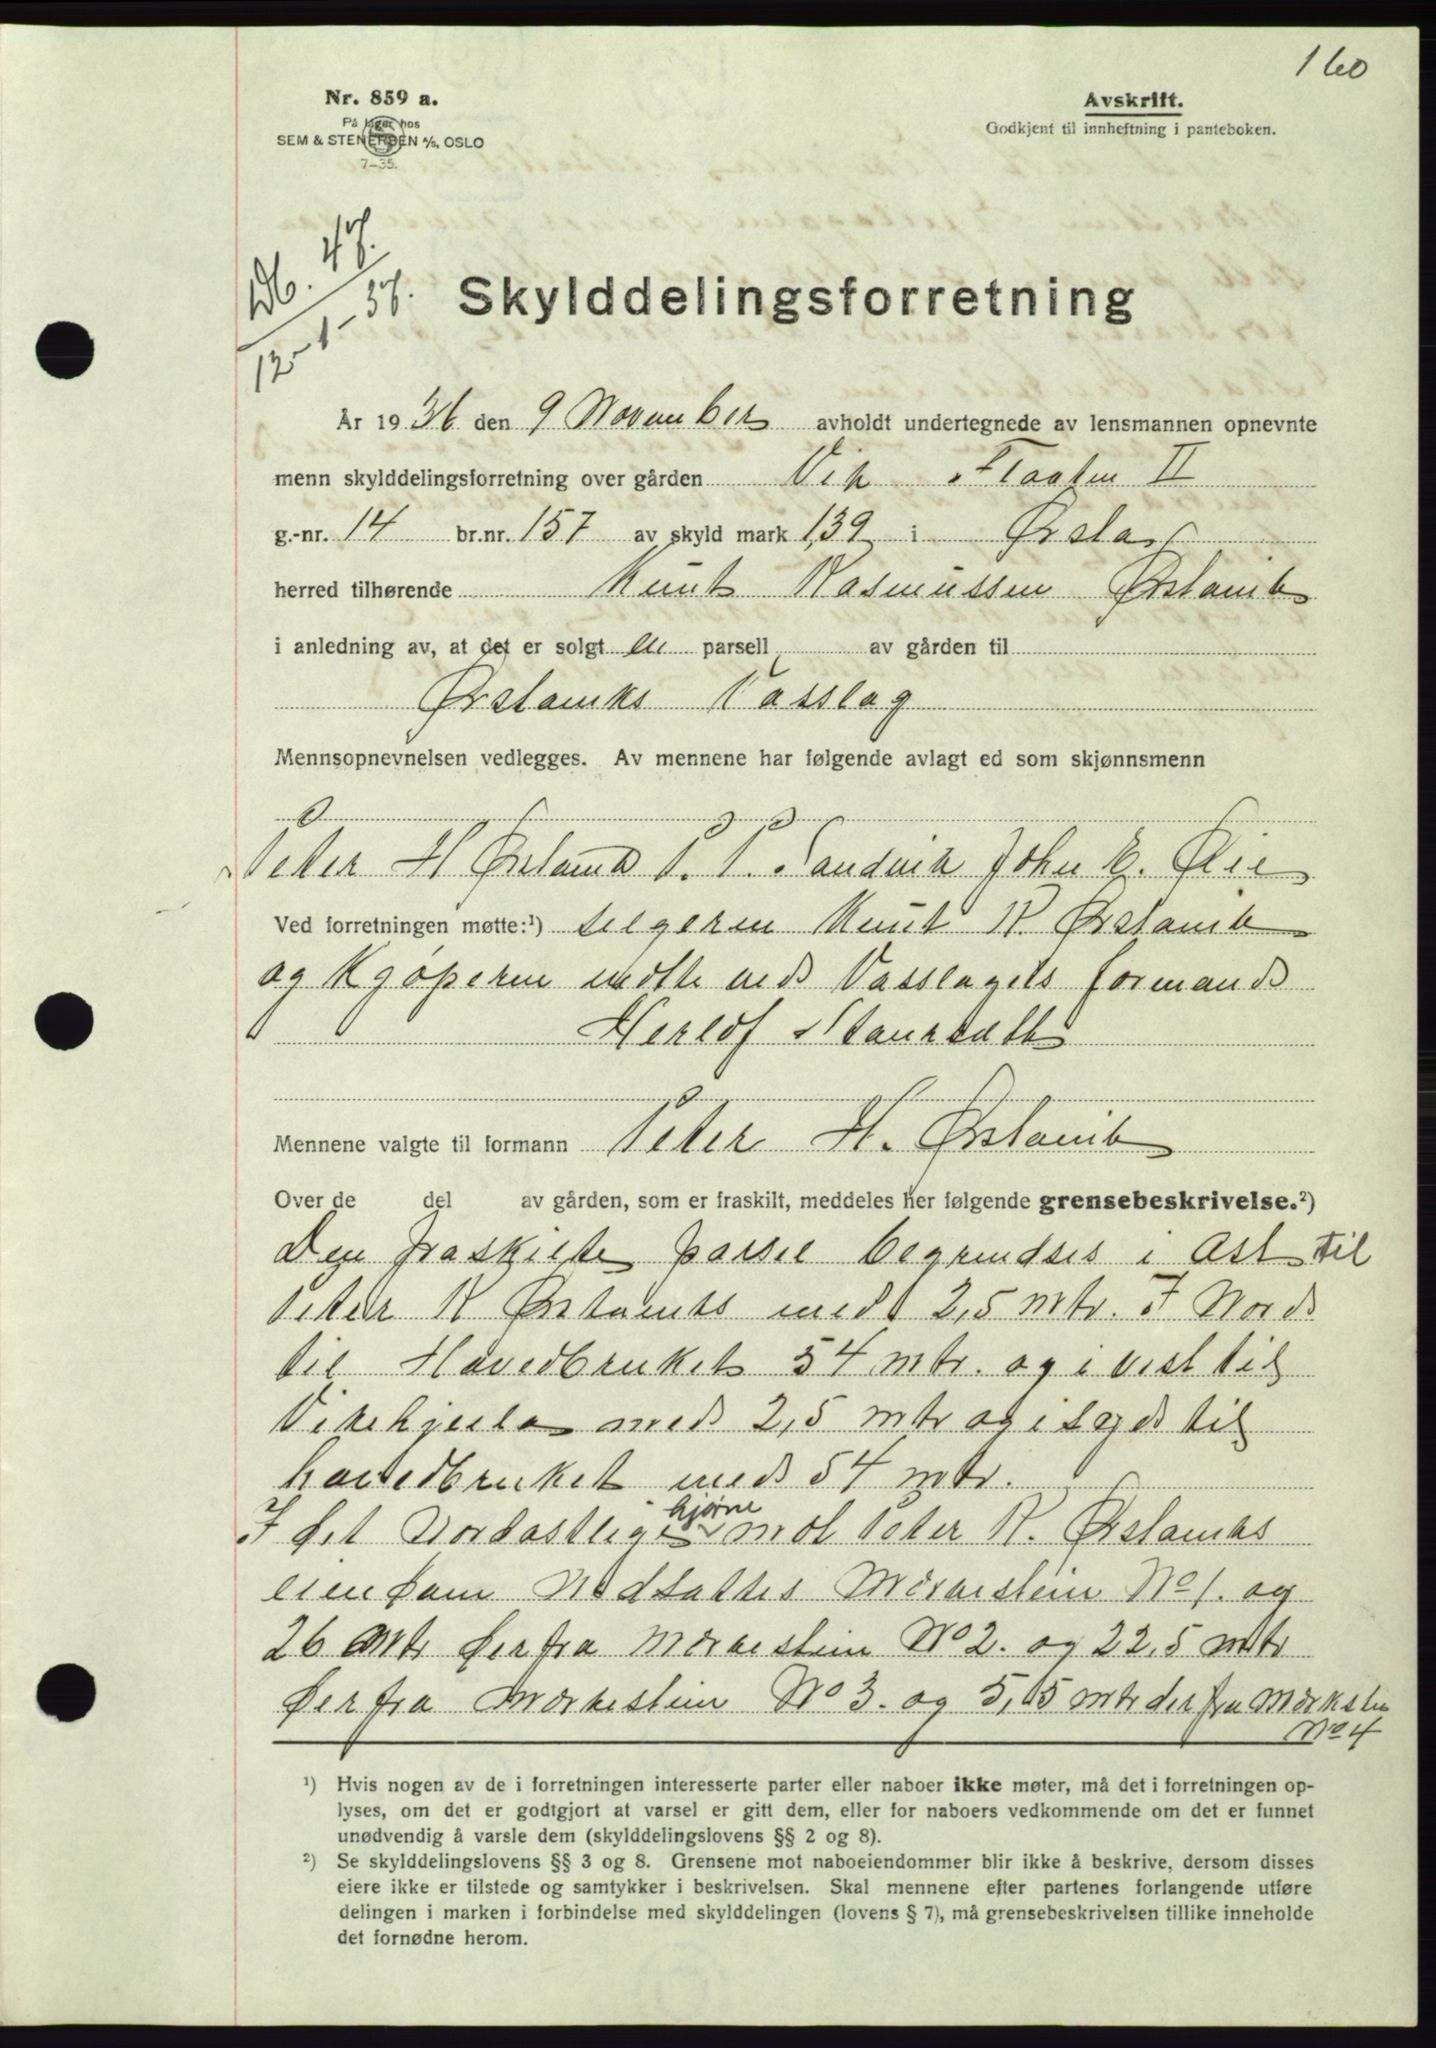 160
Nr. 859 a.
På lager hos
SEM & STENERSEN A/S, OSLO
7-35.
Avskrift.
Godkjent til innheftning i panteboken.
Db. 47.
12-1-37.
Skylddelingsforretning
År 1936 den 9 November avholdt undertegnede av lensmannen opnevnte
menn skylddelingsforretning over gården Vik Flaaten II
g.-nr. 14 br.nr. 157 av skyld mark 1,39 i Ørsta
herred tilhørende Knut Rasmussen Ørstavik
i anledning av, at det er solgt en parsell av gården til
Ørstaviks Vasslag
Mennsopnevnelsen vedlegges. Av mennene har følgende avlagt ed som skjønnsmenn
Peter H Ørstavik P. P. Sandvik John E. Øie
Ved forretningen møtte:¹) selgeren Knut R. Ørstavik
og Kjøperen møtte ved Vasslagets formand
Herlof Staursætt
Mennene valgte til formann Peter H. Ørstavik
Over de del av gården, som er fraskilt, meddeles her følgende grensebeskrivelse.²)
Den fraskilte parsel begrendses i Ast til
Peter R Ørstaviks med 2,5 mtr. I Nord
til Havedbruket 54 mtr. og i vest til
Vikekjeila med 2,5 mtr og i Syd til
havedbruket med 54 mtr.
I det Nordastlige hjørne mot Peter R. Ørstaviks
eiendom Nedsattes Merkestein No 1. og
26 Mtr derfra Merkestein No 2. og 22,5 mtr
derfra Merkestein No 3. og 5,05 mtr derfra Merkstein
No 4
¹) Hvis nogen av de i forretningen interesserte parter eller naboer ikke møter, må det i forretningen op-
lyses, om det er godtgjort at varsel er gitt dem, eller for naboers vedkommende om det er funnet
unødvendig å varsle dem (skylddelingslovens §§ 2 og 8).
²) Se skylddelingslovens §§ 3 og 8. Grensene mot naboeiendommer blir ikke å beskrive, dersom disses
eiere ikke er tilstede og samtykker i beskrivelsen. Skal mennene efter partenes forlangende utføre
delingen i marken i forbindelse med skylddelingen (lovens § 7), må grensebeskrivelsen tillike inneholde
det fornødne herom.